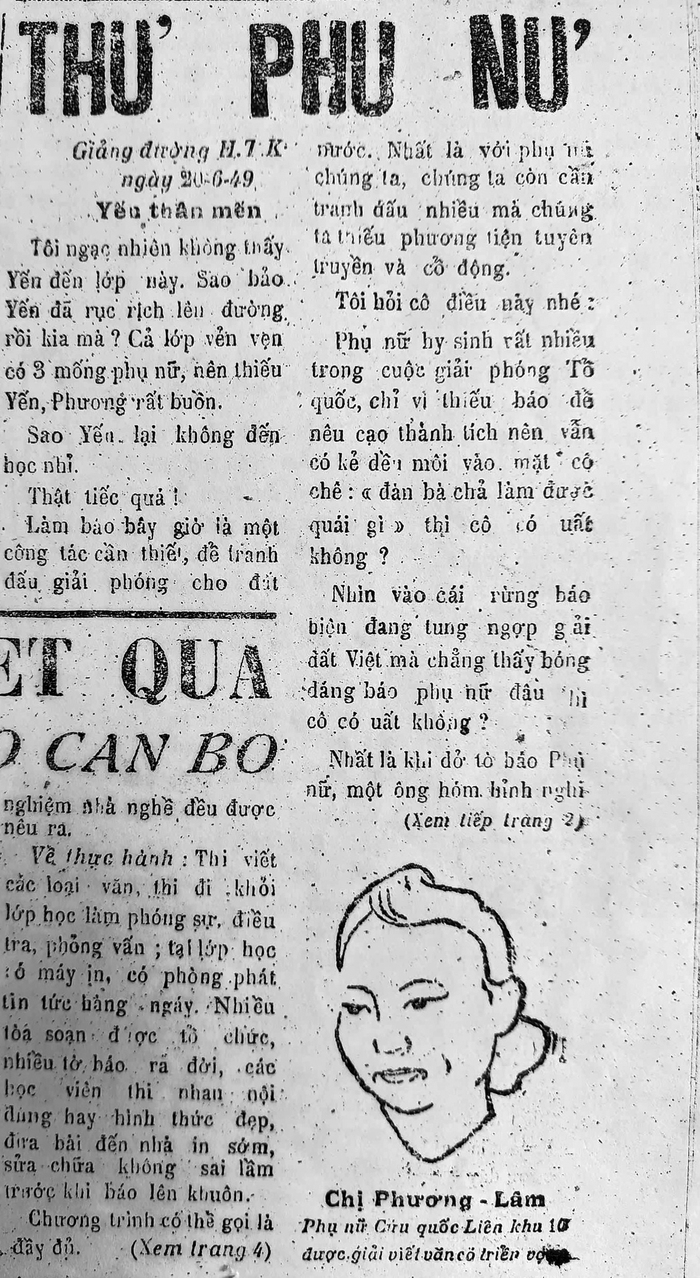 THƯ PHỤ NỮ
Giảng đường H.T.K
ngày 20-6-49
Yến thân mến
Tôi ngạc nhiên không thấy
Yến đến lớp này. Sao bảo
Yến đã rục rịch lên đường
rồi kia mà ? Cả lớp vẻn vẹn
có 3 mống phụ nữ, nên thiếu
Yến, Phương rất buồn.
Sao Yến lại không đến
học nhỉ.
Thật tiếc quá !
Làm báo bây giờ là một
công tác cần thiết, để tranh
đấu giải phóng cho đất
nước. Nhất là với phụ nữ
chúng ta, chúng ta còn cần
tranh đấu nhiều mà chúng
ta thiếu phương tiện tuyên
truyền và cổ động.
Tôi hỏi cô điều này nhé :
Phụ nữ hy sinh rất nhiều
trong cuộc giải phóng Tổ
quốc, chỉ vì thiếu báo để
nêu cao thành tích nên vẫn
có kẻ dều môi vào mặt cô
chê : « đàn bà chả làm được
quái gì » thì cô có uất
không ?
Nhìn vào cái rừng báo
hiện đang tung ngợp giải
đất Việt mà chẳng thấy bóng
dáng báo phụ nữ đâu thì
cô có uất không ?
Nhất là khi dở tờ báo Phụ
nữ, một ông hóm hỉnh nghi
(Xem tiếp trang 2)
ET QUA
CAN BO
nghiệm nhà nghề đều được
nêu ra.
Về thực hành : Thi viết
các loại văn, thi đi khỏi
lớp học làm phóng sự, điều
tra, phỏng vấn ; tại lớp học
có máy in, có phòng phát
tin tức hàng ngày. Nhiều
tòa soạn được tổ chức,
nhiều tờ báo ra đời, các
học viên thi nhau nội
dung hay hình thức đẹp,
đưa bài đến nhà in sớm,
sửa chữa không sai lầm
trước khi báo lên khuôn.
Chương trình có thể gọi là
đầy đủ. (Xem trang 4)
Chị Phương - Lâm
Phụ nữ Cứu quốc Liên khu 10
được giải viết văn có triển vọng